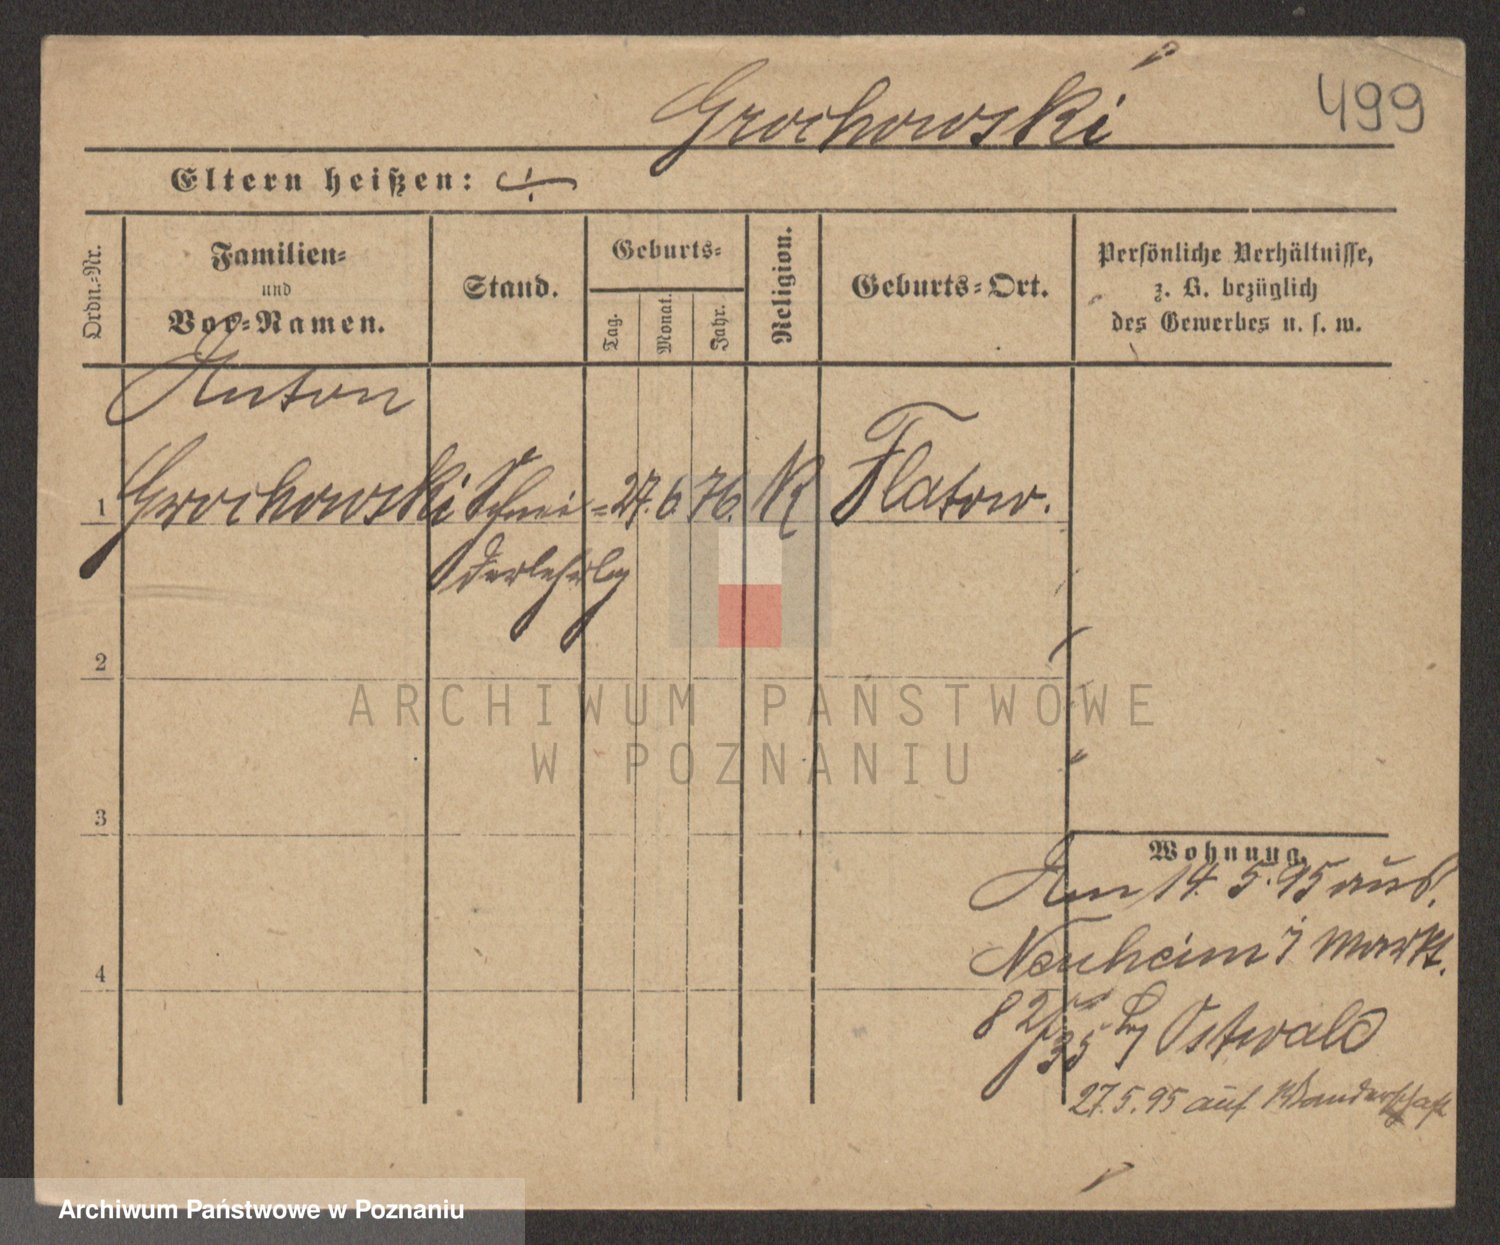 Grochowski
499
Eltern heißen:
Ordn.-Nr.
Familien-
und
Vor-Namen.
Stand.
Geburts-
Tag.
Monat.
Jahr.
Religion.
Geburts-Ort.
Persönliche Verhältnisse,
z. B. bezüglich
des Gewerbes u. s. w.
Anton
1 Grochowski Schnei= 27. 6. 76. K Flatow.
derlehrlg
2
3
4
Wohnung.
Am 14. 5. 95 aus
Neuheim i Markt.
82/35 Ostwald
27. 5. 95 auf Wanderschaft
ARCHIWUM PAŃSTWOWE
W POZNANIU
Archiwum Państwowe w Poznaniu